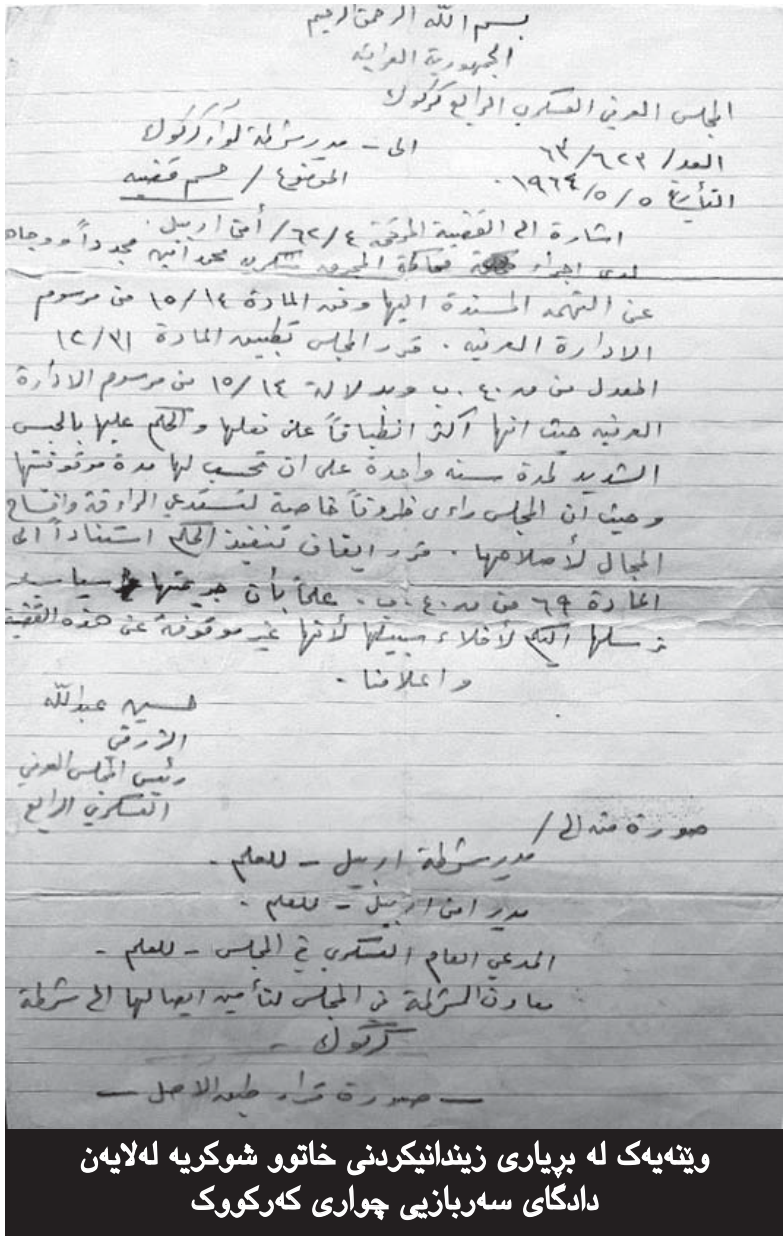 بسم الله الرحمن الرحيم
الجمهورية العراقية
المجلس العرفي العسكري الرابع كركوك
العدد/ ٦٢٣/ ٦٣
الى - مدير شرطة لواء كركوك
التأريخ ٥/ ٥/ ١٩٦٤
الموضوع / حسم قضية
اشارة الى القضية المرقمة ٤/ ٦٢/ أمن اربيل.
لدى اجراء محاكمة المجرمة شكريه محمد امين مجدداً ووجاها
عن التهمة المسندة اليها وفق المادة ١٤/ ١٥ من مرسوم
الادارة العرفيه . قرر المجلس تطبيق المادة ٣١/ ١٢
المعدل من ق . ع . ب وبدلالة ١٤/ ١٥ من مرسوم الادارة
العرفيه حيث انها أكثر انطباقاً على فعلها والحكم عليها بالحبس
الشديد لمدة سنه واحدة على ان تحسب لها مدة موقوفيتها
وحيث ان المجلس راءى ظروفاً خاصة تستدعي الرأفة وافساح
المجال لأصلاحها . قرر ايقاف تنفيذ الحكم استناداً الى
المادة ٦٩ من ق . ع . ب . علماً بأن جريمتها سياسيه
نرسلها اليكم لأخلاء سبيلها لأنها غير موقوفة عن هذه القضية
واعلامنا .
حسين عبدالله
رئيس المجلس العرفي
العسكري الرابع
صورة منه الى /
مدير شرطة اربيل - للعلم .
مدير امن اربيل - للعلم .
المدعي العام العسكري في المجلس - للعلم -
معاون الشرطة في المجلس لتأمين ايصالها الى شرطة
كركوك -
— صورة قرار طبق الاصل —
وێنەیەک لە بڕیاری زیندانیکردنی خاتوو شوکریە لەلایەن
دادگای سەربازیی چواری کەرکووک